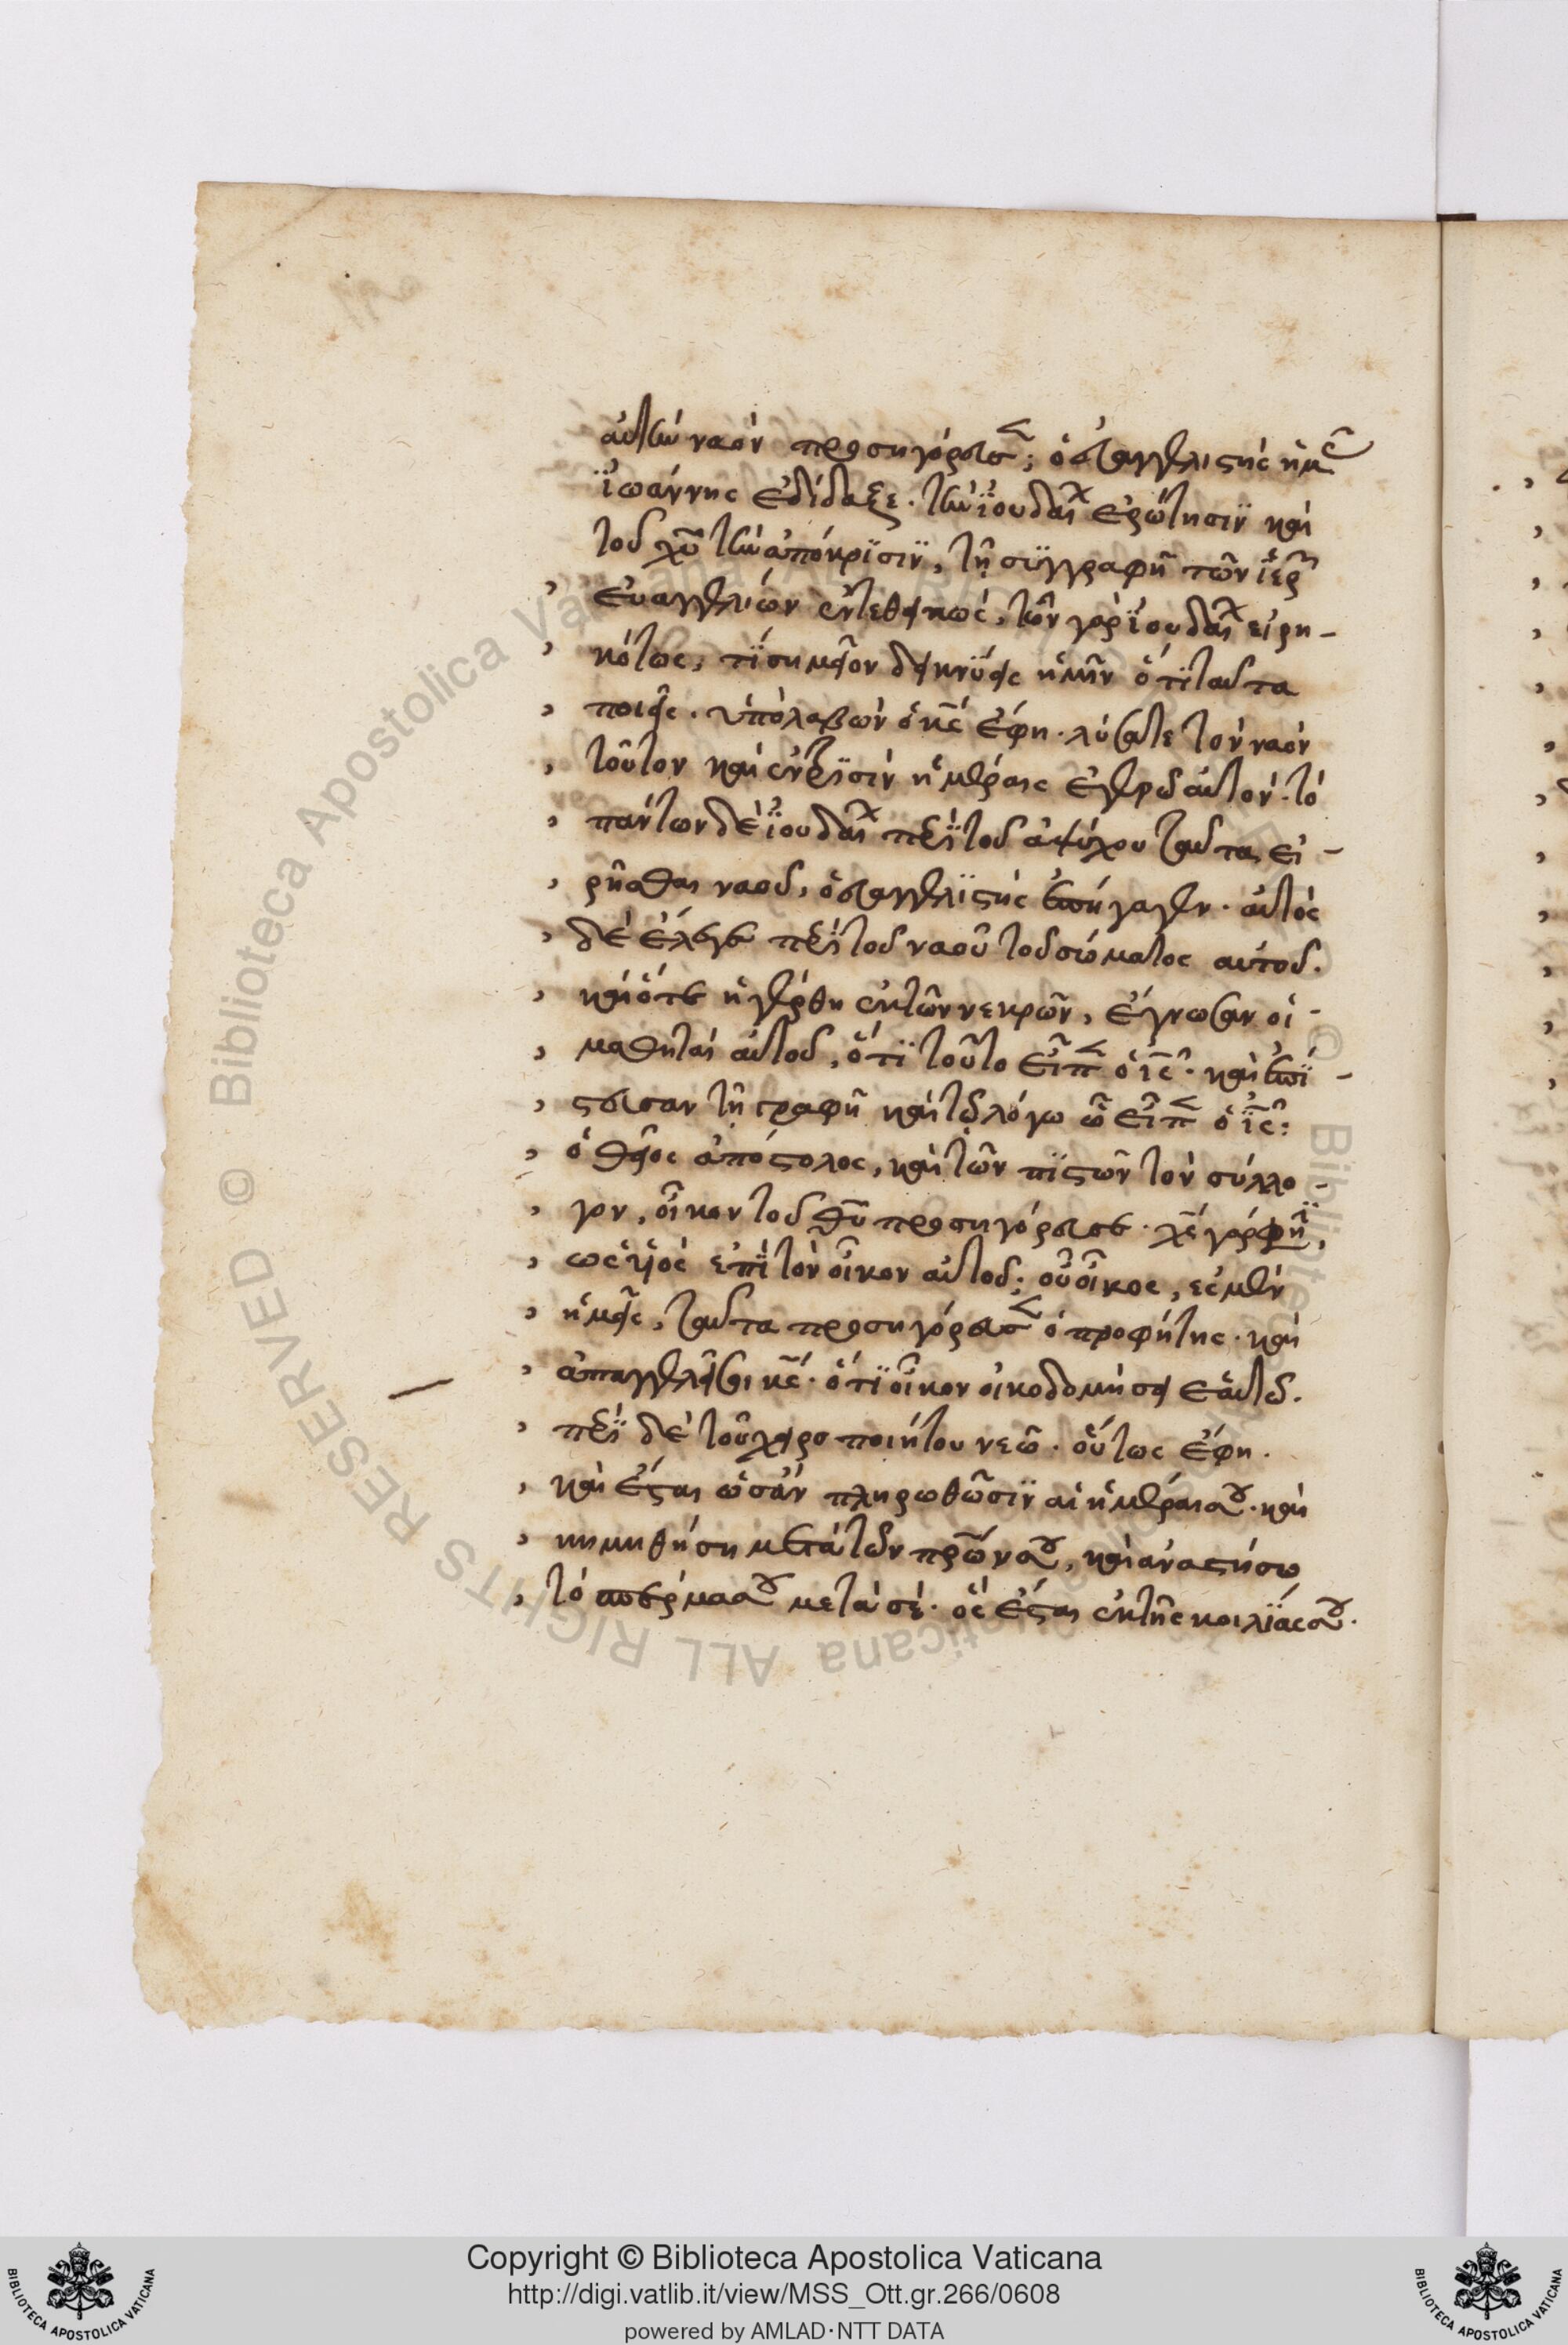 αὐτὴν ναὸν προσηγόρευσ; ὁ εὐαγγελιστὴς ἡμᾶς
ϊωάννης ἐδίδαξε. τὴν ϊουδαι ἐρώτησιν καὶ
τοῦ χυ τὴν ἀπόκρισιν, τῆ συγγραφῆ τῶν ἱερ
εὐαγγελίων ἐντεθεικώς. τῶν γὰρ ϊουδαι εἰρη-
κότων, τί σημεῖον δεικνύεις ἡμῖν ὅτι ταῦτα
ποιεῖς. ὑπολαβὼν ὁ κς ἔφη. λύσατε τὸν ναὸν
τοῦτον καὶ ἐν τρισὶν ἡμέραις ἐγερῶ αὐτόν. τὸ
πάντων δὲ ϊουδαι περὶ τοῦ ἀψύχου ταῦτα εἰ-
ρῆσθαι ναοῦ, ὁ εὐαγγελιστὴς ἐπήγαγεν. αὐτὸς
δὲ ἔλεγε περὶ τοῦ ναοῦ τοῦ σώματος αὐτοῦ.
καὶ ὅτε ἠγέρθη ἐκ τῶν νεκρῶν, ἔγνωσαν οἱ
μαθηταὶ αὐτοῦ, ὅτι τοῦτο εἶπ ὁ ις. καὶ ἐπί-
στευσαν τῆ γραφῆ καὶ τῷ λόγω ῷ εἶπ ὁ ϊς:
ὁ θεῖος ἀπόστολος, καὶ τῶν πιστῶν τὸν σύλλο-
γον, οἶκον τοῦ θυ προσηγόρευσε. χς γάρ φησιν,
ὡς ὑὸς ἐπὶ τὸν οἶκον αὐτοῦ; οὗ οἶκος, ἐσμὲν
ἡμεῖς, ταῦτα προσηγόρευσ ὁ προφήτης. καὶ
ἀπαγγελεῖ σοι κς. ὅτι οἶκον οἰκοδομήσει ἑαυτῶ.
περὶ δὲ τοῦ χειροποιήτου νεῶ. οὕτως ἔφη.
καὶ ἔσται ὡς ἂν πληρωθῶσιν αἱ ἡμέραι σου. καὶ
κημηθήση μετὰ τῶν πρων σου, καὶ ἀναστήσω
τὸ σπέρμα σου μετὰ σέ. ὃς ἔσται ἐκ τῆς κοιλίας σου.
Copyright © Biblioteca Apostolica Vaticana
http://digi.vatlib.it/view/MSS_Ott.gr.266/0608
powered by AMLAD·NTT DATA